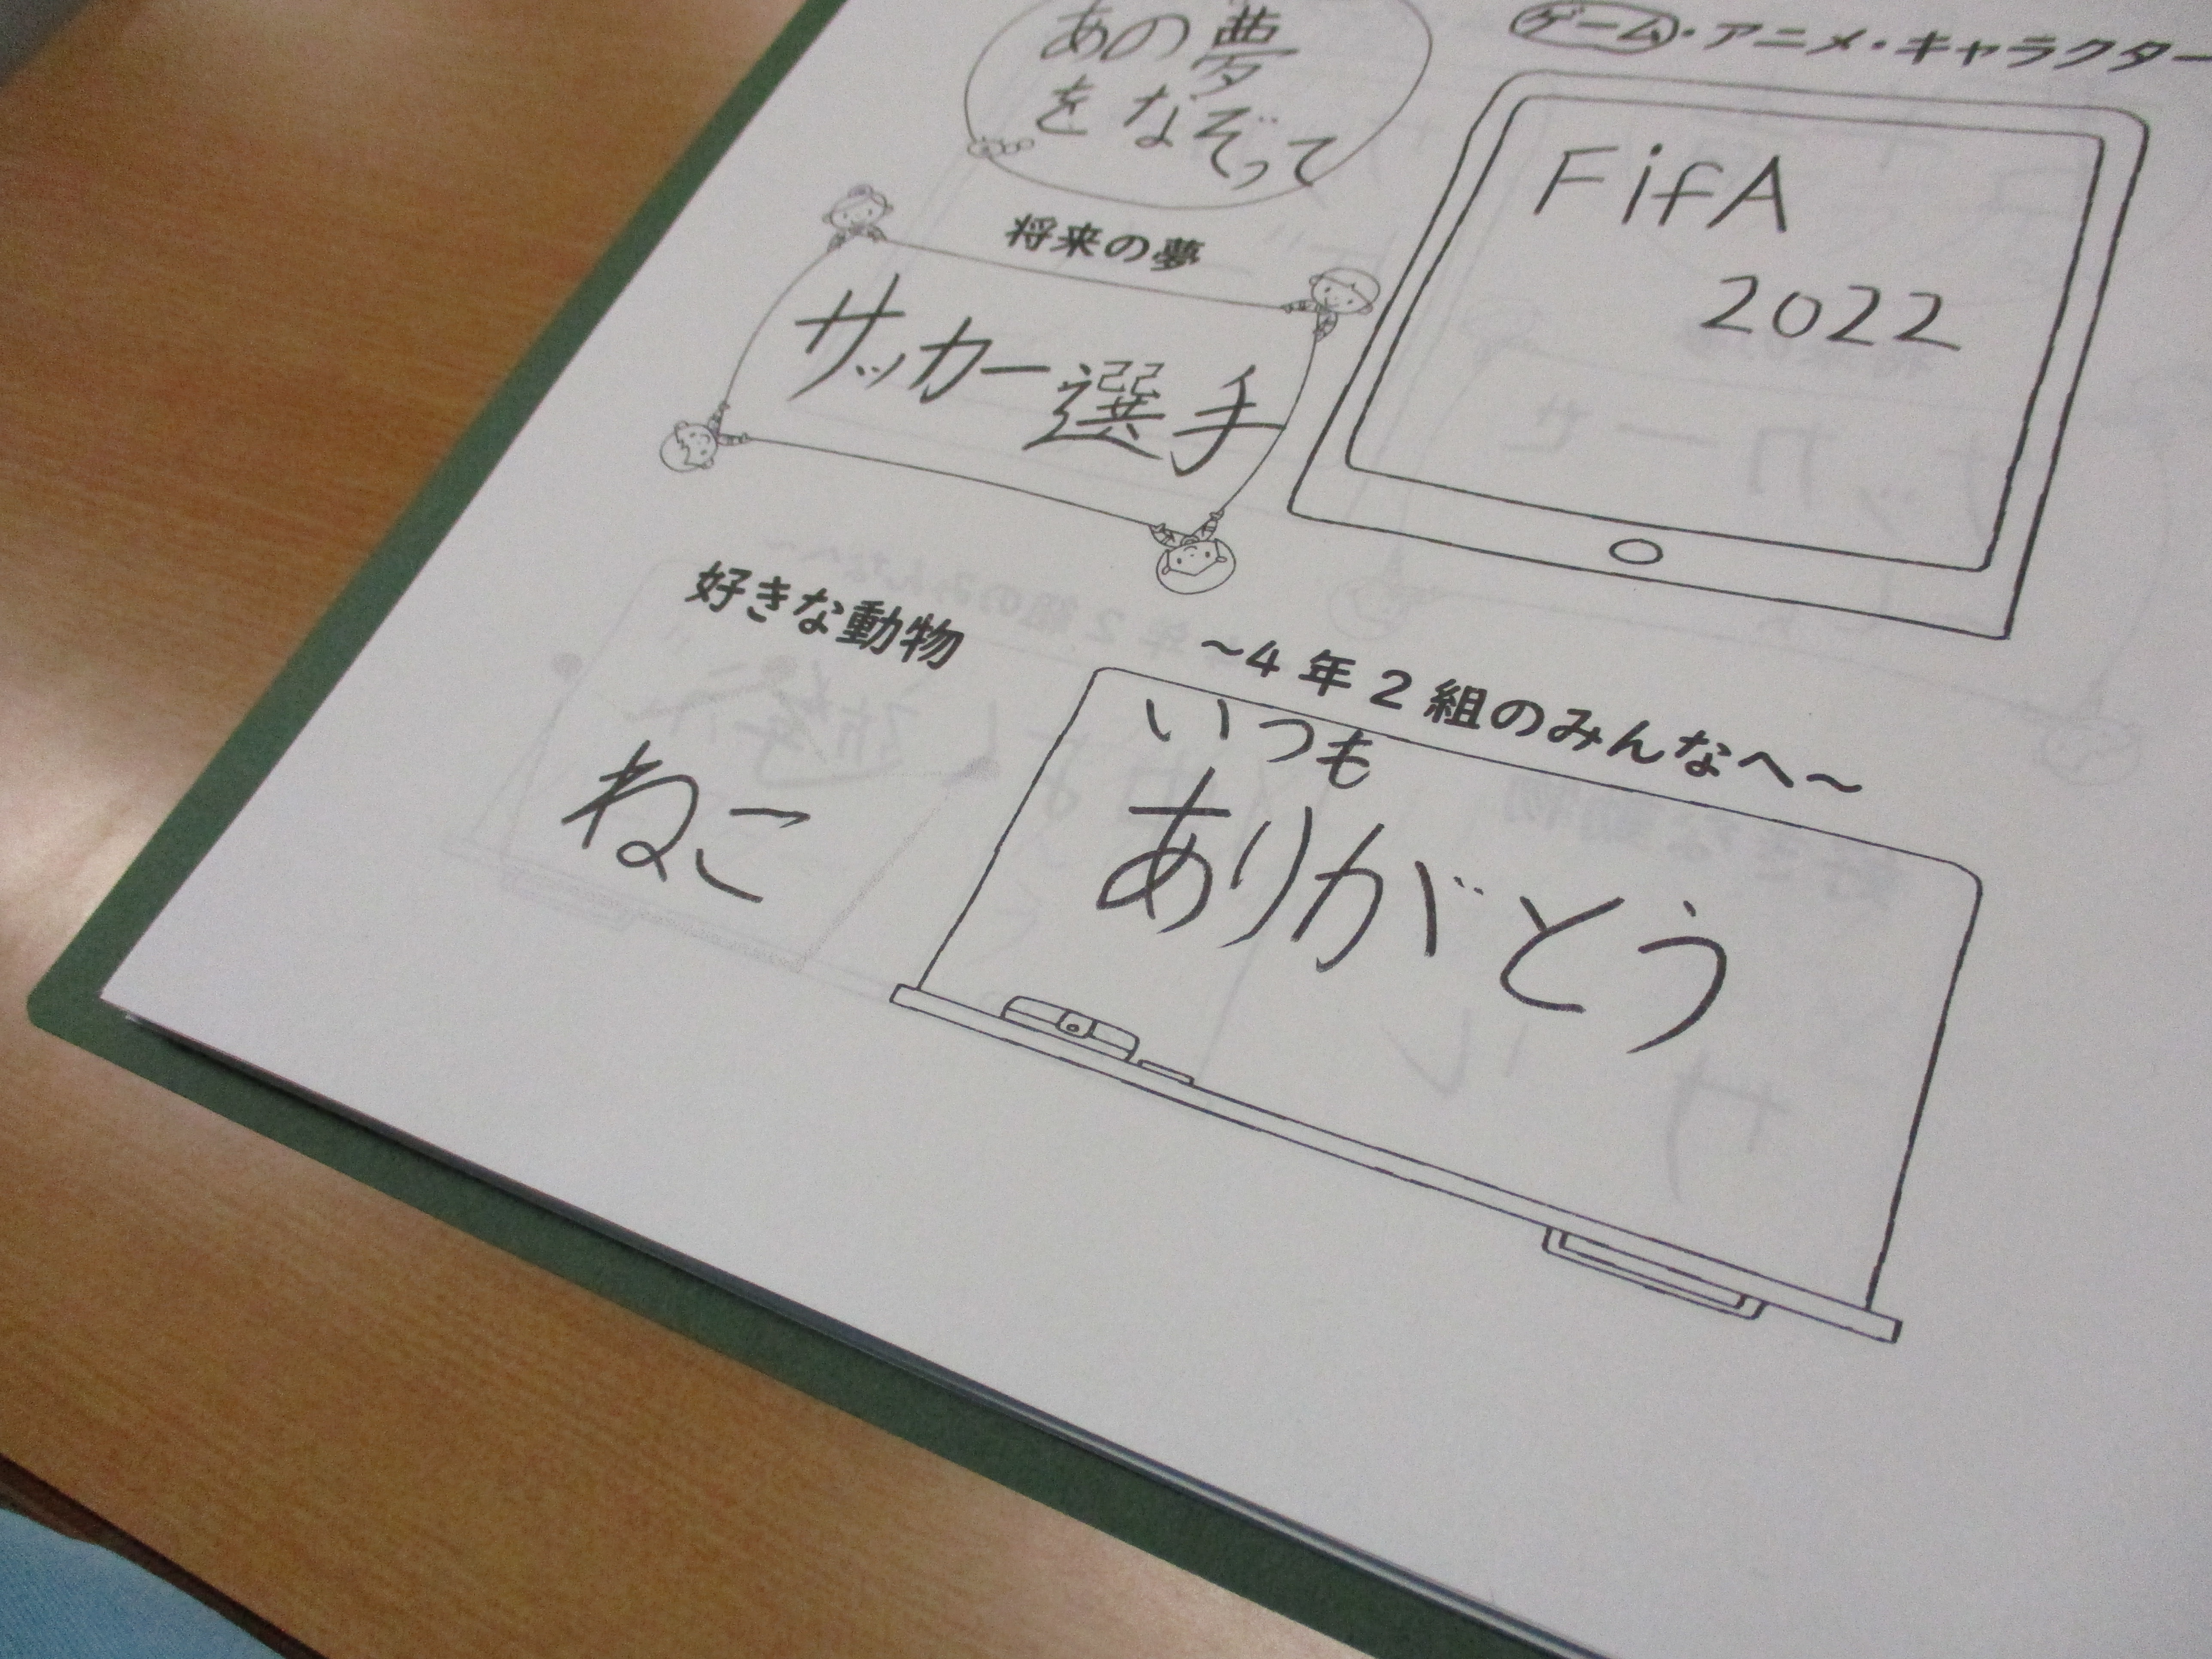 あの夢
をなぞって
ゲーム・アニメ・キャラクター
FifA
2022
将来の夢
サッカー選手
好きな動物
ねこ
～4年2組のみんなへ～
いつも
ありがとう